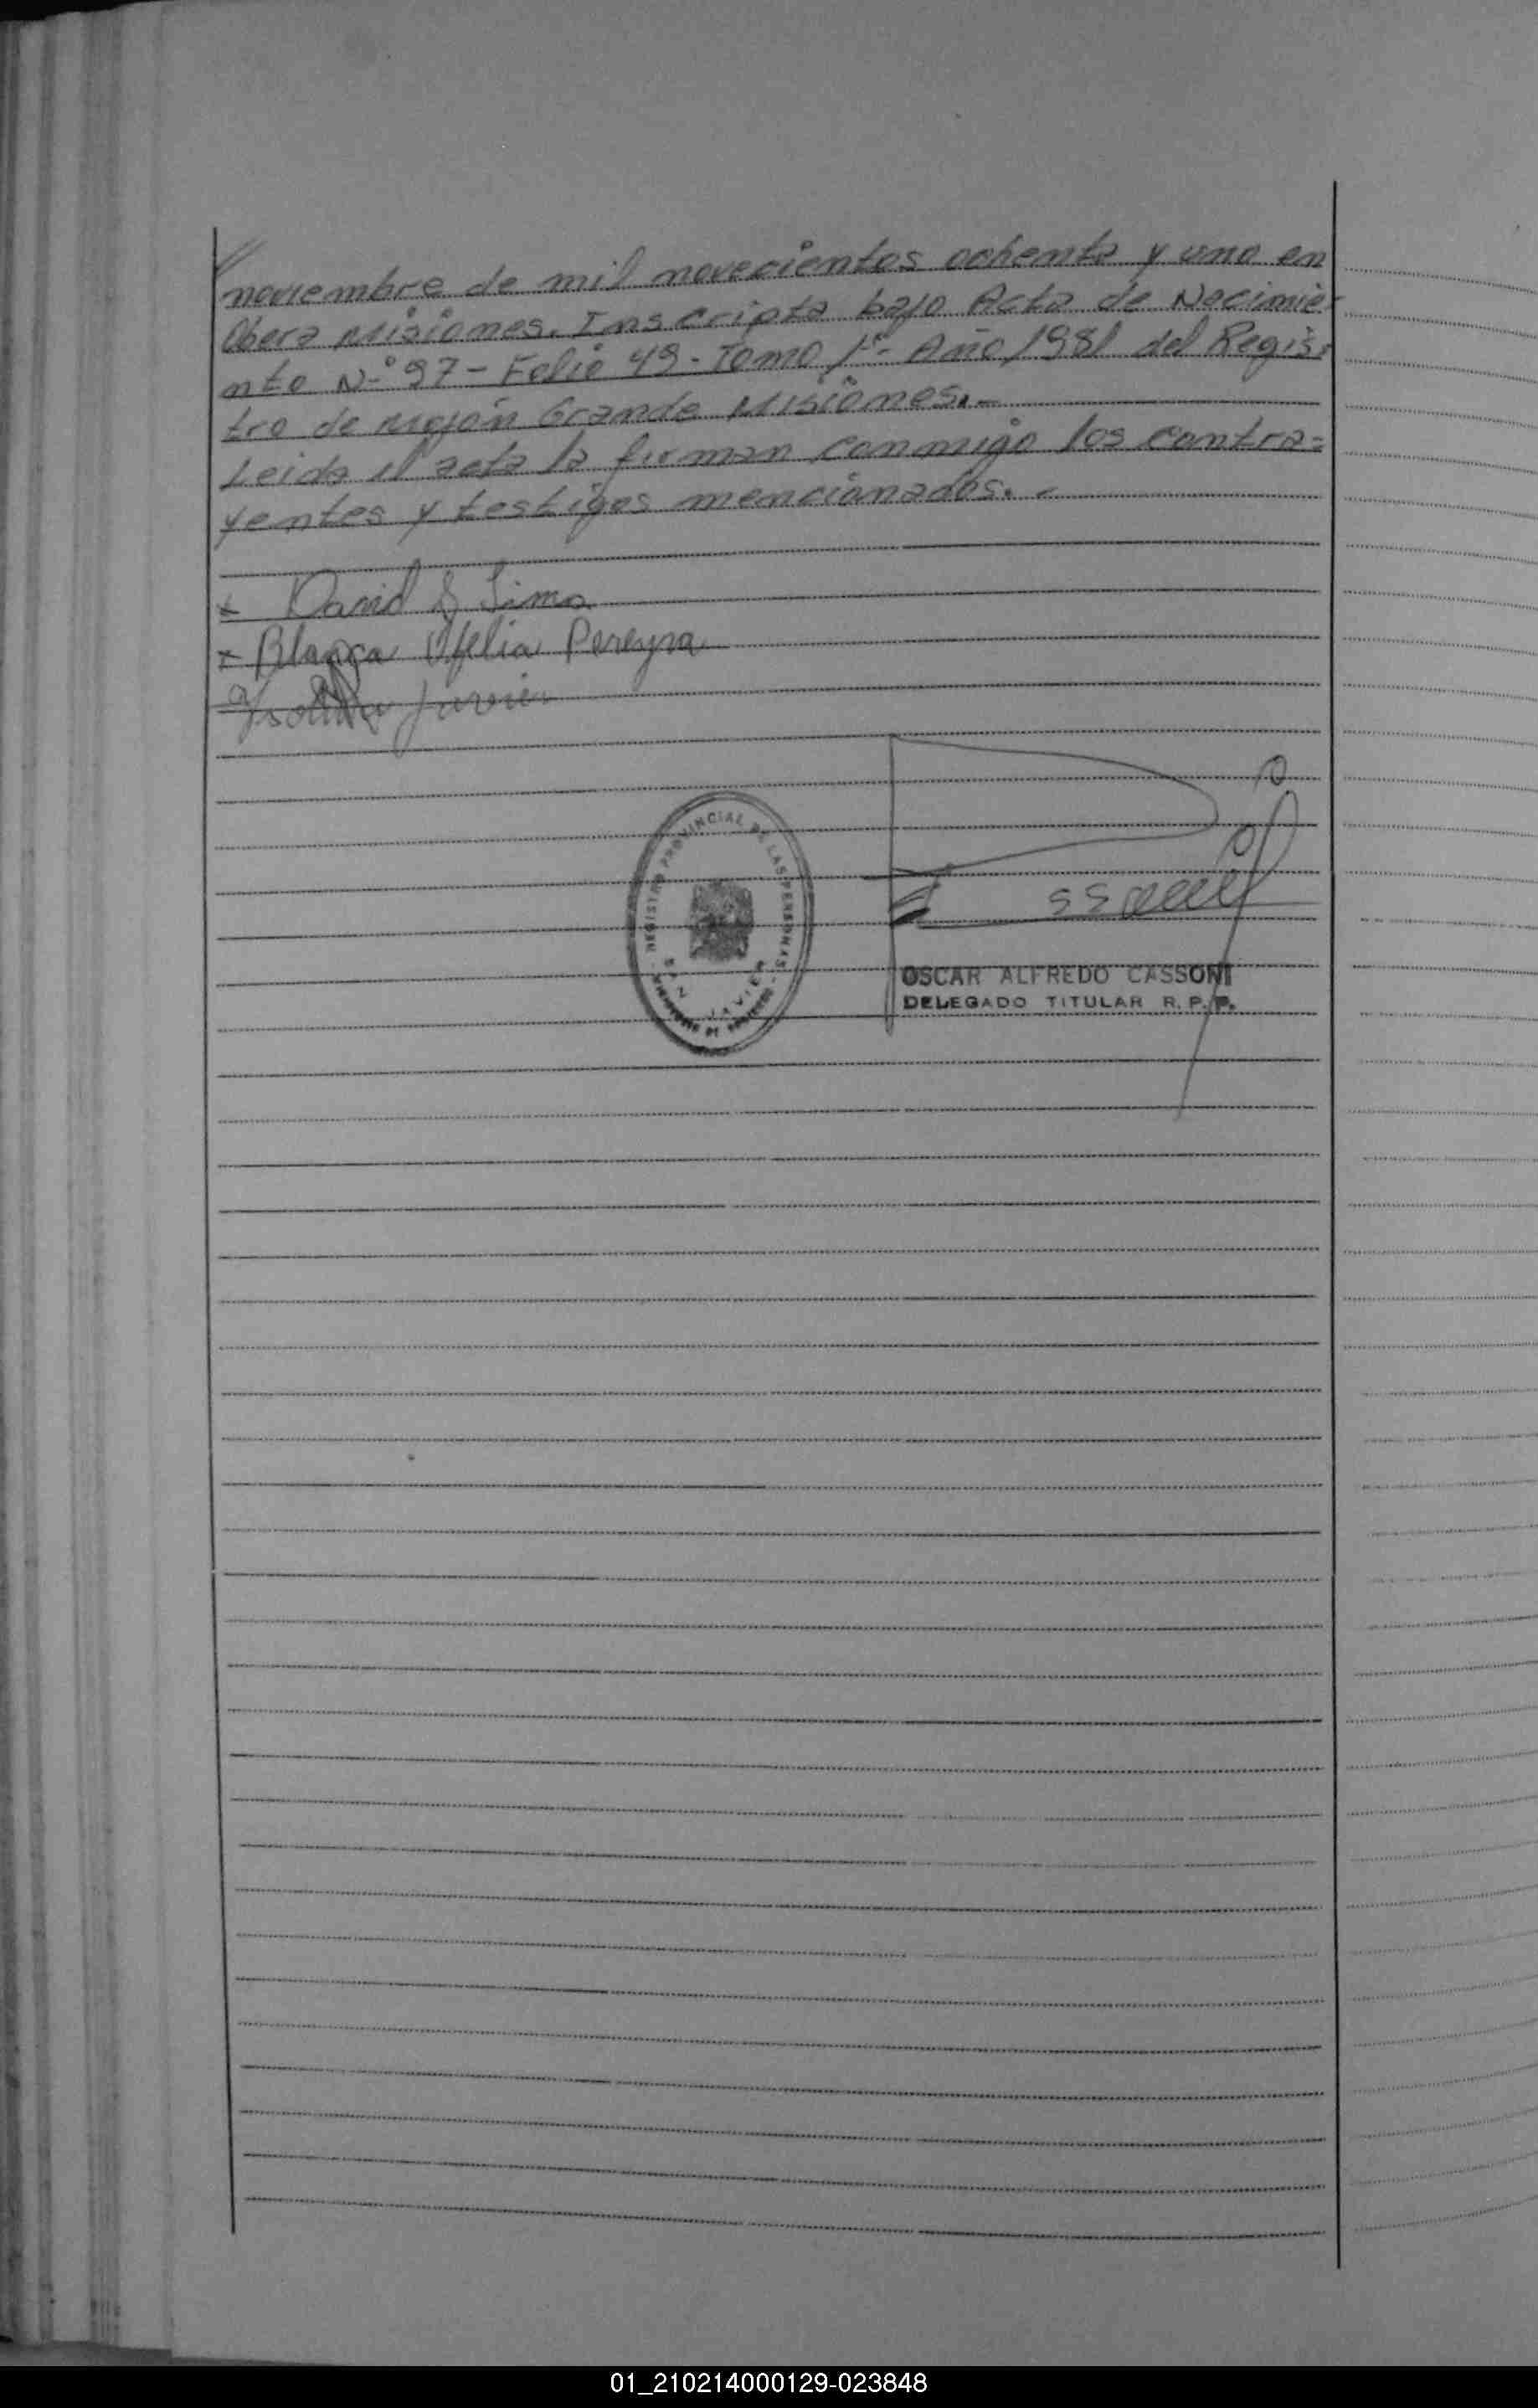 noviembre de mil novecientos ochenta y uno en
Oberá Misiones. Inscripta bajo Acta de Nacimie-
nto N-º 97 - Folio 49 - Tomo 1º - Año 1981 del Regis-
tro de Mojón Grande Misiones.-
Leida el acta la firman conmigo los contra=
yentes y testigos mencionados. -
x David
x Blanca Ofelia Pereyra
REGISTRO PROVINCIAL DE LAS PERSONAS
SAN JAVIER
OSCAR ALFREDO CASSONI
DELEGADO TITULAR R. P. P.
01_210214000129-023848